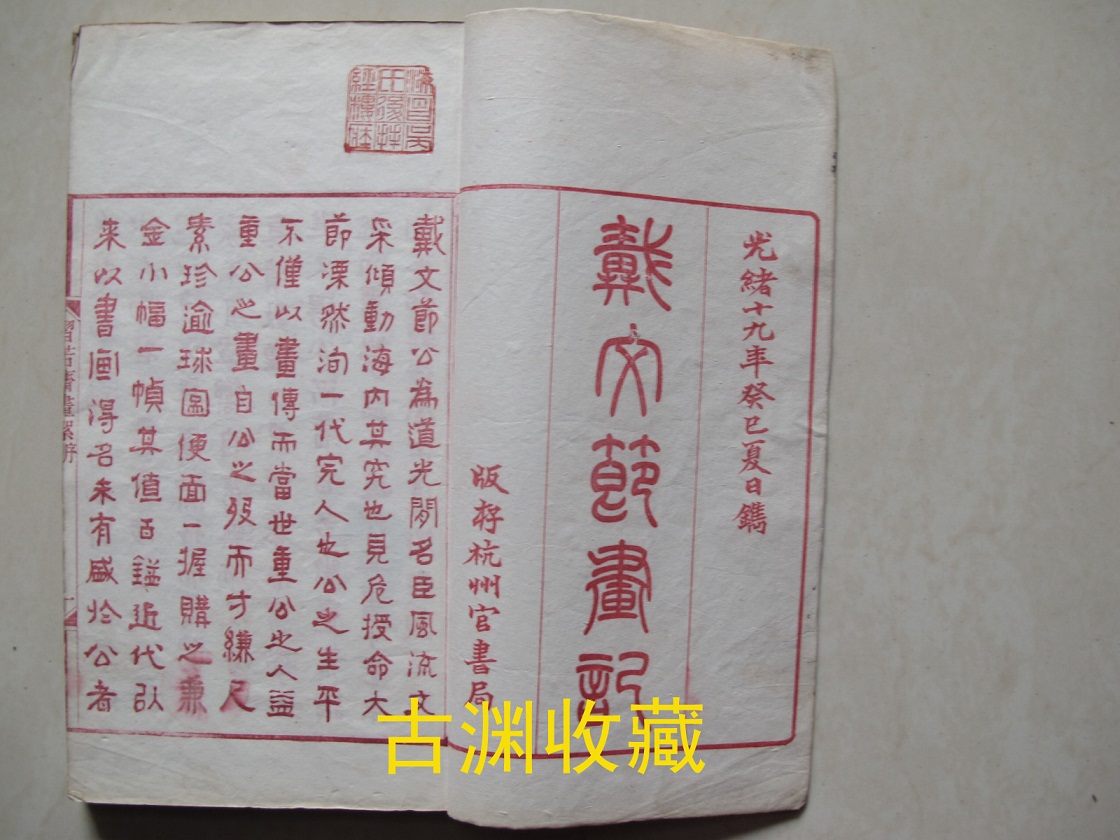 光緒十九年癸巳夏日鐫
戴文節畫記
版存杭州官書局
戴文節公為道光間名臣風流文
采傾動海内其究也見危授命大
節凜然洵一代完人也公之生平
不僅以畫傳而當世重公之人益
重公之畫自公之殁而寸縑尺
素珍逾球圖便面一握購之兼
金小幅一幀其值百鎰近代以
来以書画得名未有盛於公者
習苦齋畫絮序
一
古渊收藏